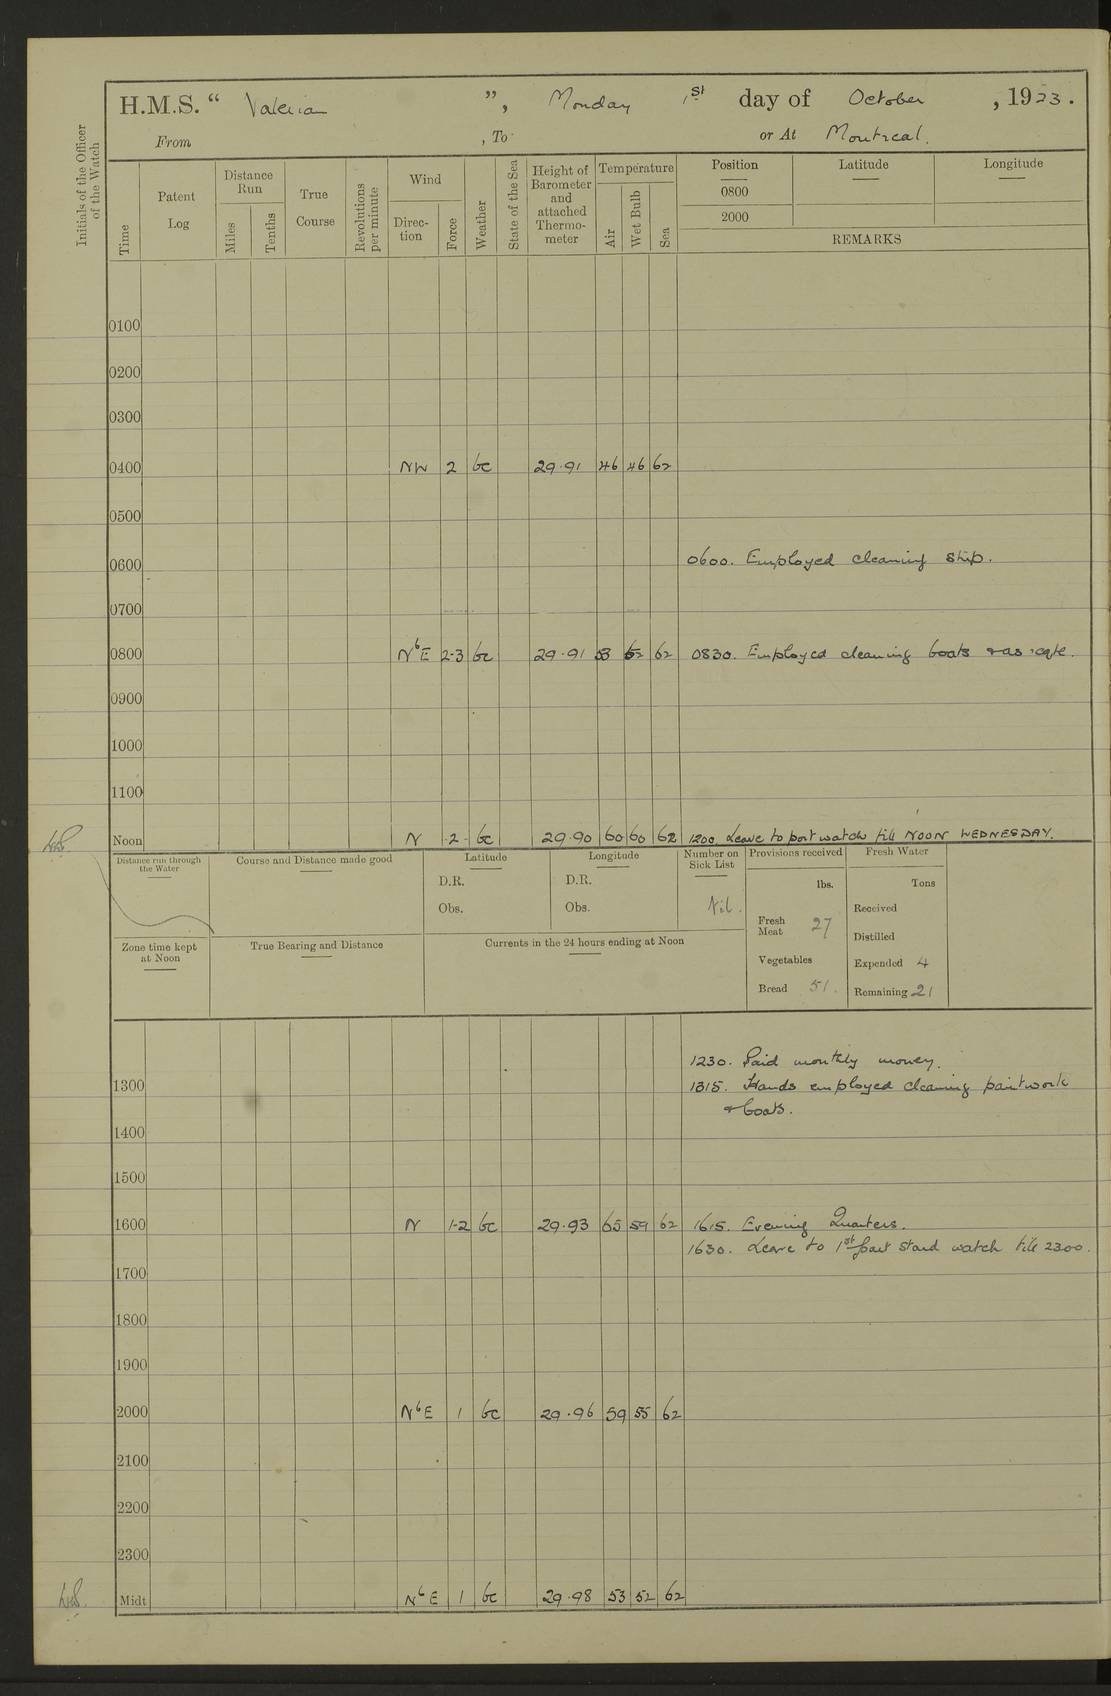 H.M.S. “ Valerian ”, Monday 1st day of October , 1923 .
From , To or At Montreal.
Initials of the Officer of the Watch
Time
Patent Log
Distance Run
Miles
Tenths
True Course
Revolutions per minute
Wind
Direction
Force
Weather
State of the Sea
Height of Barometer and attached Thermometer
Temperature
Air
Wet Bulb
Sea
Position
Latitude
Longitude
0800
2000
REMARKS
0100
0200
0300
0400 NW 2 bc 29.91 46 46 62
0500
0600 0600. Employed cleaning ship.
0700
0800 NbE 2-3 bc 29.91 53 52 62 0830. Employed cleaning boats &
0900
1000
1100
Noon N 2 bc 29.90 60 60 62 1200. Leave to port watch till NOON WEDNESDAY.
Distance run through the Water
Course and Distance made good
Latitude
D.R.
Obs.
Longitude
D.R.
Obs.
Number on Sick List
Nil.
Provisions received
lbs.
Fresh Meat 27
Vegetables
Bread 51.
Fresh Water
Tons
Received
Distilled
Expended 4
Remaining 21
Zone time kept at Noon
True Bearing and Distance
Currents in the 24 hours ending at Noon
1230. Paid monthly money.
1300 1315. Hands employed cleaning paintwork
& boats.
1400
1500
1600 N 1-2 bc 29.93 65 59 62 1615. Evening Quarters.
1630. Leave to 1st part starbd watch till 2300.
1700
1800
1900
2000 NbE 1 bc 29.96 59 55 62
2100
2200
2300
Midt NbE 1 bc 29.98 53 52 62